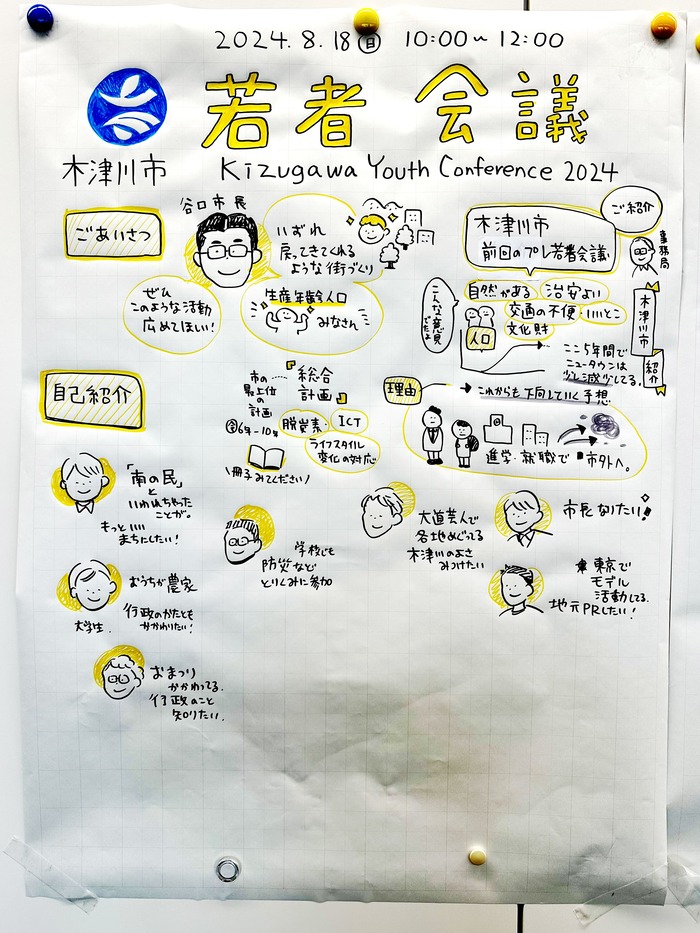 2024.8.18(日) 10:00~12:00
若者会議
木津川市 Kizugawa Youth Conference 2024
ごあいさつ
谷口市長
いずれ
戻ってきてくれる
ような街づくり
ぜひ
このような活動
広めてほしい!
生産年齢人口
みなさん
ご紹介
木津川市
前回のプレ若者会議
事務局
こんな
意見
でたよ
自然がある 治安よい
交通の不便・いいとこ
文化財
木津川市
紹介
人口
ここ5年間で
ニュータウンは
少し減少してる。
理由
これからも下向していく予想
進学・就職で 市外へ。
市の
最上位
の
計画
『総合
計画』
6年~10年
脱炭素・ICT
ライフスタイル
変化の対応
\冊子みてください/
自己紹介
「南の民」
と
いわれちゃった
ことが。
もっといい
まちにしたい!
学校でも
防災など
とりくみに参加
大道芸人で
各地めぐってる
木津川のよさ
みつけたい
市長なりたい!
東京で
モデル
活動してる。
地元PRしたい!
おうちが農家
行政のかたとも
かかわりたい!
大学生。
おまつり
かかわってる。
行政のこと
知りたい。